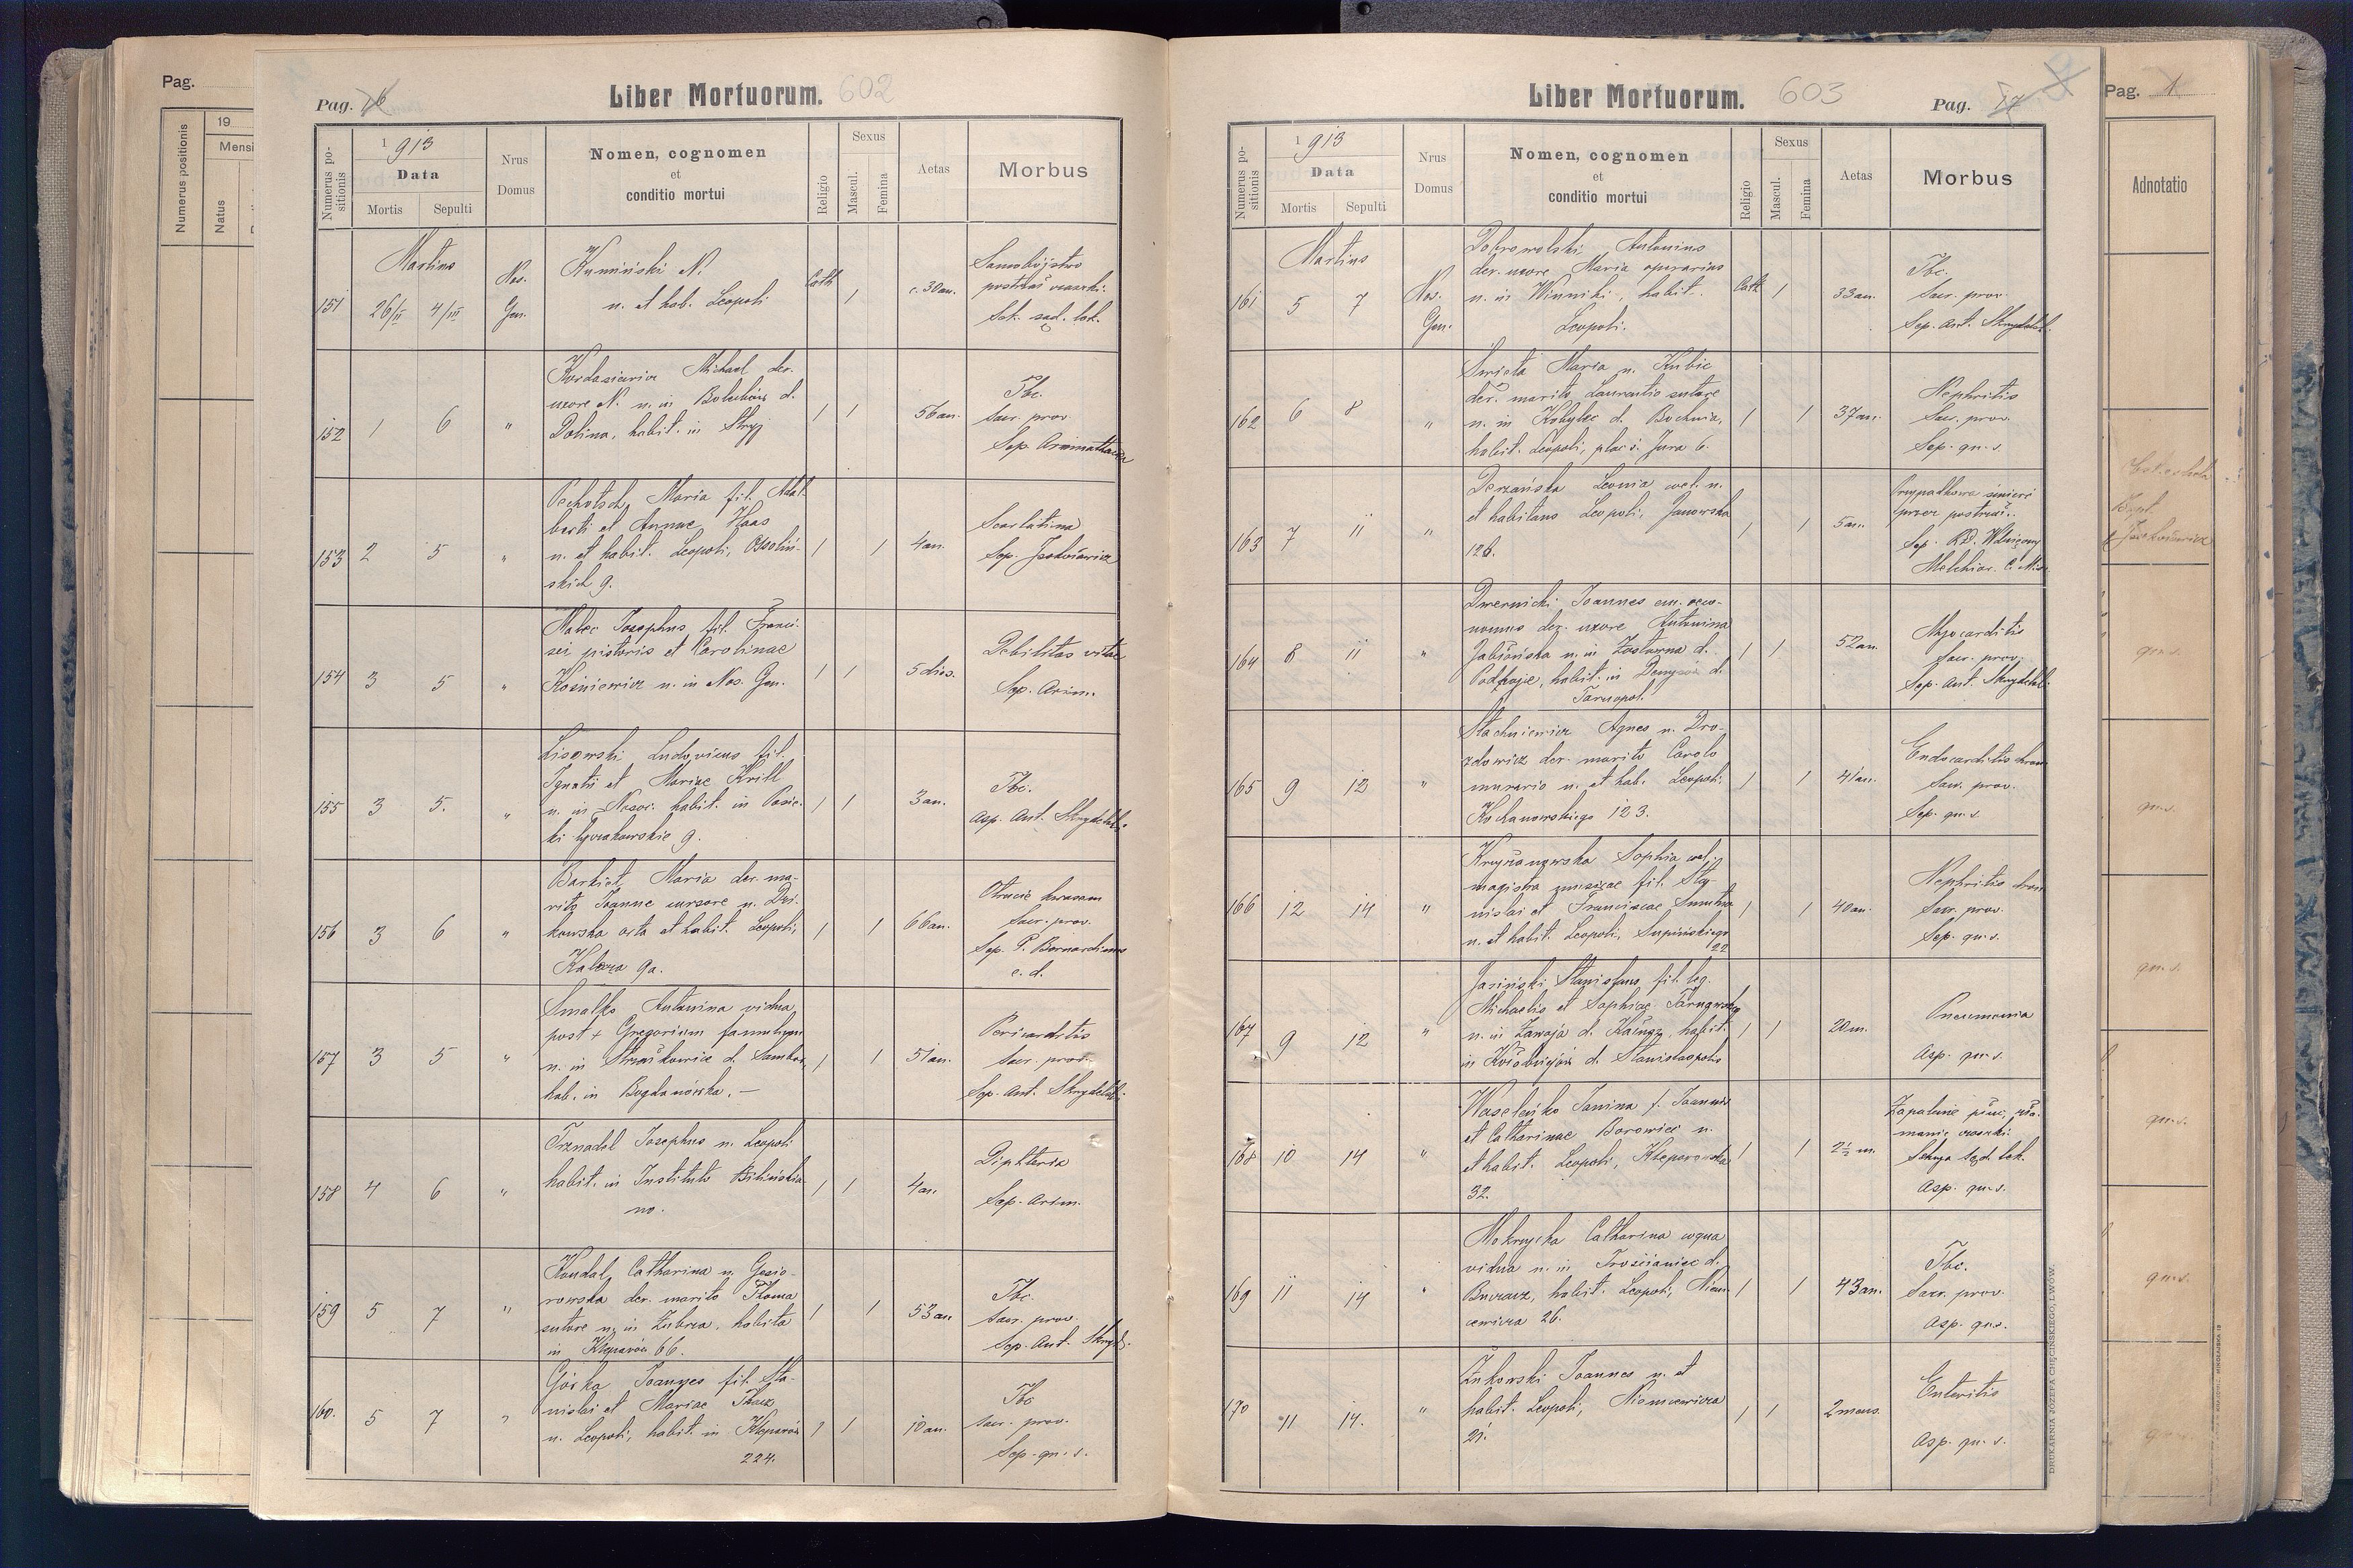 Pag.
Numerus positionis
19
Mensi
Natus
Pag. 16
Liber Mortuorum. 602
Numerus positionis
1913
Data
Mortis
Sepulti
Nrus
Domus
Nomen, cognomen
et
conditio mortui
Religio
Sexus
Mascul.
Femina
Aetas
Morbus
Martius
151
26/II
4/III
Nos.
Gen.
Kumiński N.
n. et hab. Leopoli
Cath
1
c. 30 an.
Samobójstwo
postrzał czaszki.
Sek. sąd. lek.
152
1
6
"
Kordasiewicz Michael der.
uxore N. n. in Bolechów d.
Dolina, habit. in Stryj
1
1
56 an.
Tbc.
Sacr. prov.
Sep.
153
2
5
"
Maria fil. Adal-
berti et Annae Haas
n. et habit. Leopoli, Ossoliń-
skich 9.
1
1
4 an.
Scarlatina
Sep. Jaśkiewicz
154
3
5
"
Malec Josephus fil. Franci-
sci pistoris et Carolinae
Kośniewicz n. in Nos. Gen.
1
1
5 dies.
Debilitas vitae
Sep. Arim.
155
3
5.
"
Lisowski Ludovicus fil.
Ignatii et Mariae Krill
n. in Nosoc. habit. in Pasie-
ki Łyczakowskie 9.
1
1
3 an.
Tbc.
Asp. Ant.
156
3
6
"
Maria der. ma-
rito Joanne cursore n. Dzi-
kowska orta et habit. Leopoli,
Kalecza 9a.
1
1
66 an.
Otrucie kwasem
Sacr. prov.
Sep. P. Bernardinus
c. d.
157
3
5
"
Smalko Antonina vidua
post + Gregorium famulum
n. in d. Sambor,
hab. in Bogdanówka. —
1
1
51 an.
Pericarditis
Sacr. prov.
Sep. Ant.
158
4
6
"
Trznadel Josephus n. Leopoli
habit. in Instituto Bilińskia-
no.
1
1
4 an.
Diphteria
Sep. Arim.
159
5
7
"
Kondal Catharina n. Gąsio-
rowska der. marito Thoma
sutore n. in Zubrza, habita
in Kleparów 66.
1
1
53 an
Tbc.
Sacr. prov.
Sep. Ant.
160.
5
7
"
Górka Joannes fil. Sta-
nislai et Mariae Tkacz
n. Leopoli, habit. in Kleparów
224.
1
1
10 an.
Tbc
Sacr. prov.
Sep. qu. s.
Liber Mortuorum. 603
Pag. 17
Numerus positionis
1913
Data
Mortis
Sepulti
Nrus
Domus
Nomen, cognomen
et
conditio mortui
Religio
Sexus
Mascul.
Femina
Aetas
Morbus
Martius
161
5
7
Nos.
Gen.
Dobrowolski Antonius
der. uxore Maria operarius
n. in Winniki, habit.
Leopoli.
Cath
1
33 an.
Tbc.
Sacr. prov.
Sep. Ant.
162
6
8
"
Święta Maria n. Kubic
der. marito Laurentio sutore
n. in Kobylec d. Bochnia,
habit. Leopoli, plac ś. Jura 6.
1
1
37 an.
Nephritis
Sac. prov.
Sep. qu. s.
163
7
11
"
Derzańska Leonia cael. n.
et habitans Leopoli, Janowska
126.
1
1
5 an.
Przypadkowa śmierć
przez postrzał.
Sep. RD.
Melchior C. Mis.
164
8
11
"
Dwernicki Joannes em. oeco-
nomus der. uxore Antonina
Jabłońska n. in d.
habit. in Denysów d.
Tarnopol.
1
1
52 an.
Myocarditis
Sacr. prov.
Sep. Ant.
165
9
12
"
Stachniewicz Agnes n. Dro-
zdowicz der. marito Carolo
murario n. et hab. Leopoli
Kochanowskiego 123.
1
1
41 an.
Endocarditis chron
Sacr. prov.
Sep. qu. s.
166
12
14
"
Krzyżanowska Sophia cael.
magistra musicae fil. Sta-
nislai et Franciscae
n. et habit. Leopoli, Supińskiego
22
1
1
40 an.
Nephritis chron
Sacr. prov.
Sep. qu. s.
167
9
12
"
Jasiński Stanislaus fil. leg.
Michaelis et Sophiae Tarnawska
n. in Zawoja d. Kałusz, habit.
in d. Stanislaopolis
1
1
20 m.
Pneumonia
Asp. qu. s.
168
10
14
"
Janina f. Joannis
et Catharinae Borowiec n.
et habit. Leopoli, Kleparowska
32.
1
1
2½ m.
Zapalenie płuc, zła-
manie czaszki.
Sekcya sąd. lek.
Asp. qu. s.
169
11
14
"
Mokrzycka Catharina coqua
vidua n. in Trościaniec d.
Buczacz, habit. Leopoli, Niem-
cewicza 26.
1
1
43 an.
Tbc.
Sacr. prov.
Asp. qu. s.
170
11
14.
"
Żukowski Joannes n. et
habit. Leopoli, Niemcewicza
21.
1
1
2 mens.
Enteritis
Asp. qu. s.
DRUKARNIA JÓZEFA CHĘCIŃSKIEGO, LWÓW.
Pag. 1
Adnotatio
Jaśkiewicz
qu. s.
qu. s.
qu. s.
qu. s.
qu. s.
qu. s.